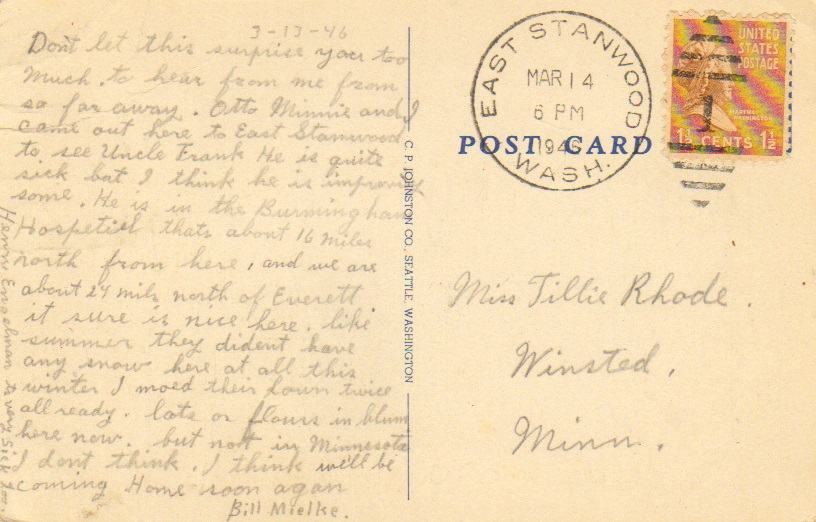 3-13-46
Dont let this surprise you too
Much. to hear from me from
so far away. Otto Minnie and I
came out here to East Stanwood
to see Uncle Frank He is quite
sick but I think he is improving
some. He is in the Burmingham
Hospetiel thats about 16 miles
north from here, and we are
about 24 mils north of Everett
it sure is nice here. like
summer they dident have
any snow here at all this
winter I moed their lawn twice
all ready. lots or flours in blum
here now. but nott in Minnesota
I dont think. I think we'll be
coming Home soon agan
Bill Mielke.
Henry Engelman is very Sick too.
C. P. JOHNSTON CO. SEATTLE, WASHINGTON
EAST STANWOOD
MAR 14
6 PM
1946
WASH.
POST CARD
UNITED
STATES
POSTAGE
MARTHA
WASHINGTON
1½ CENTS 1½
1
Miss Tillie Rhode.
Winsted,
Minn.